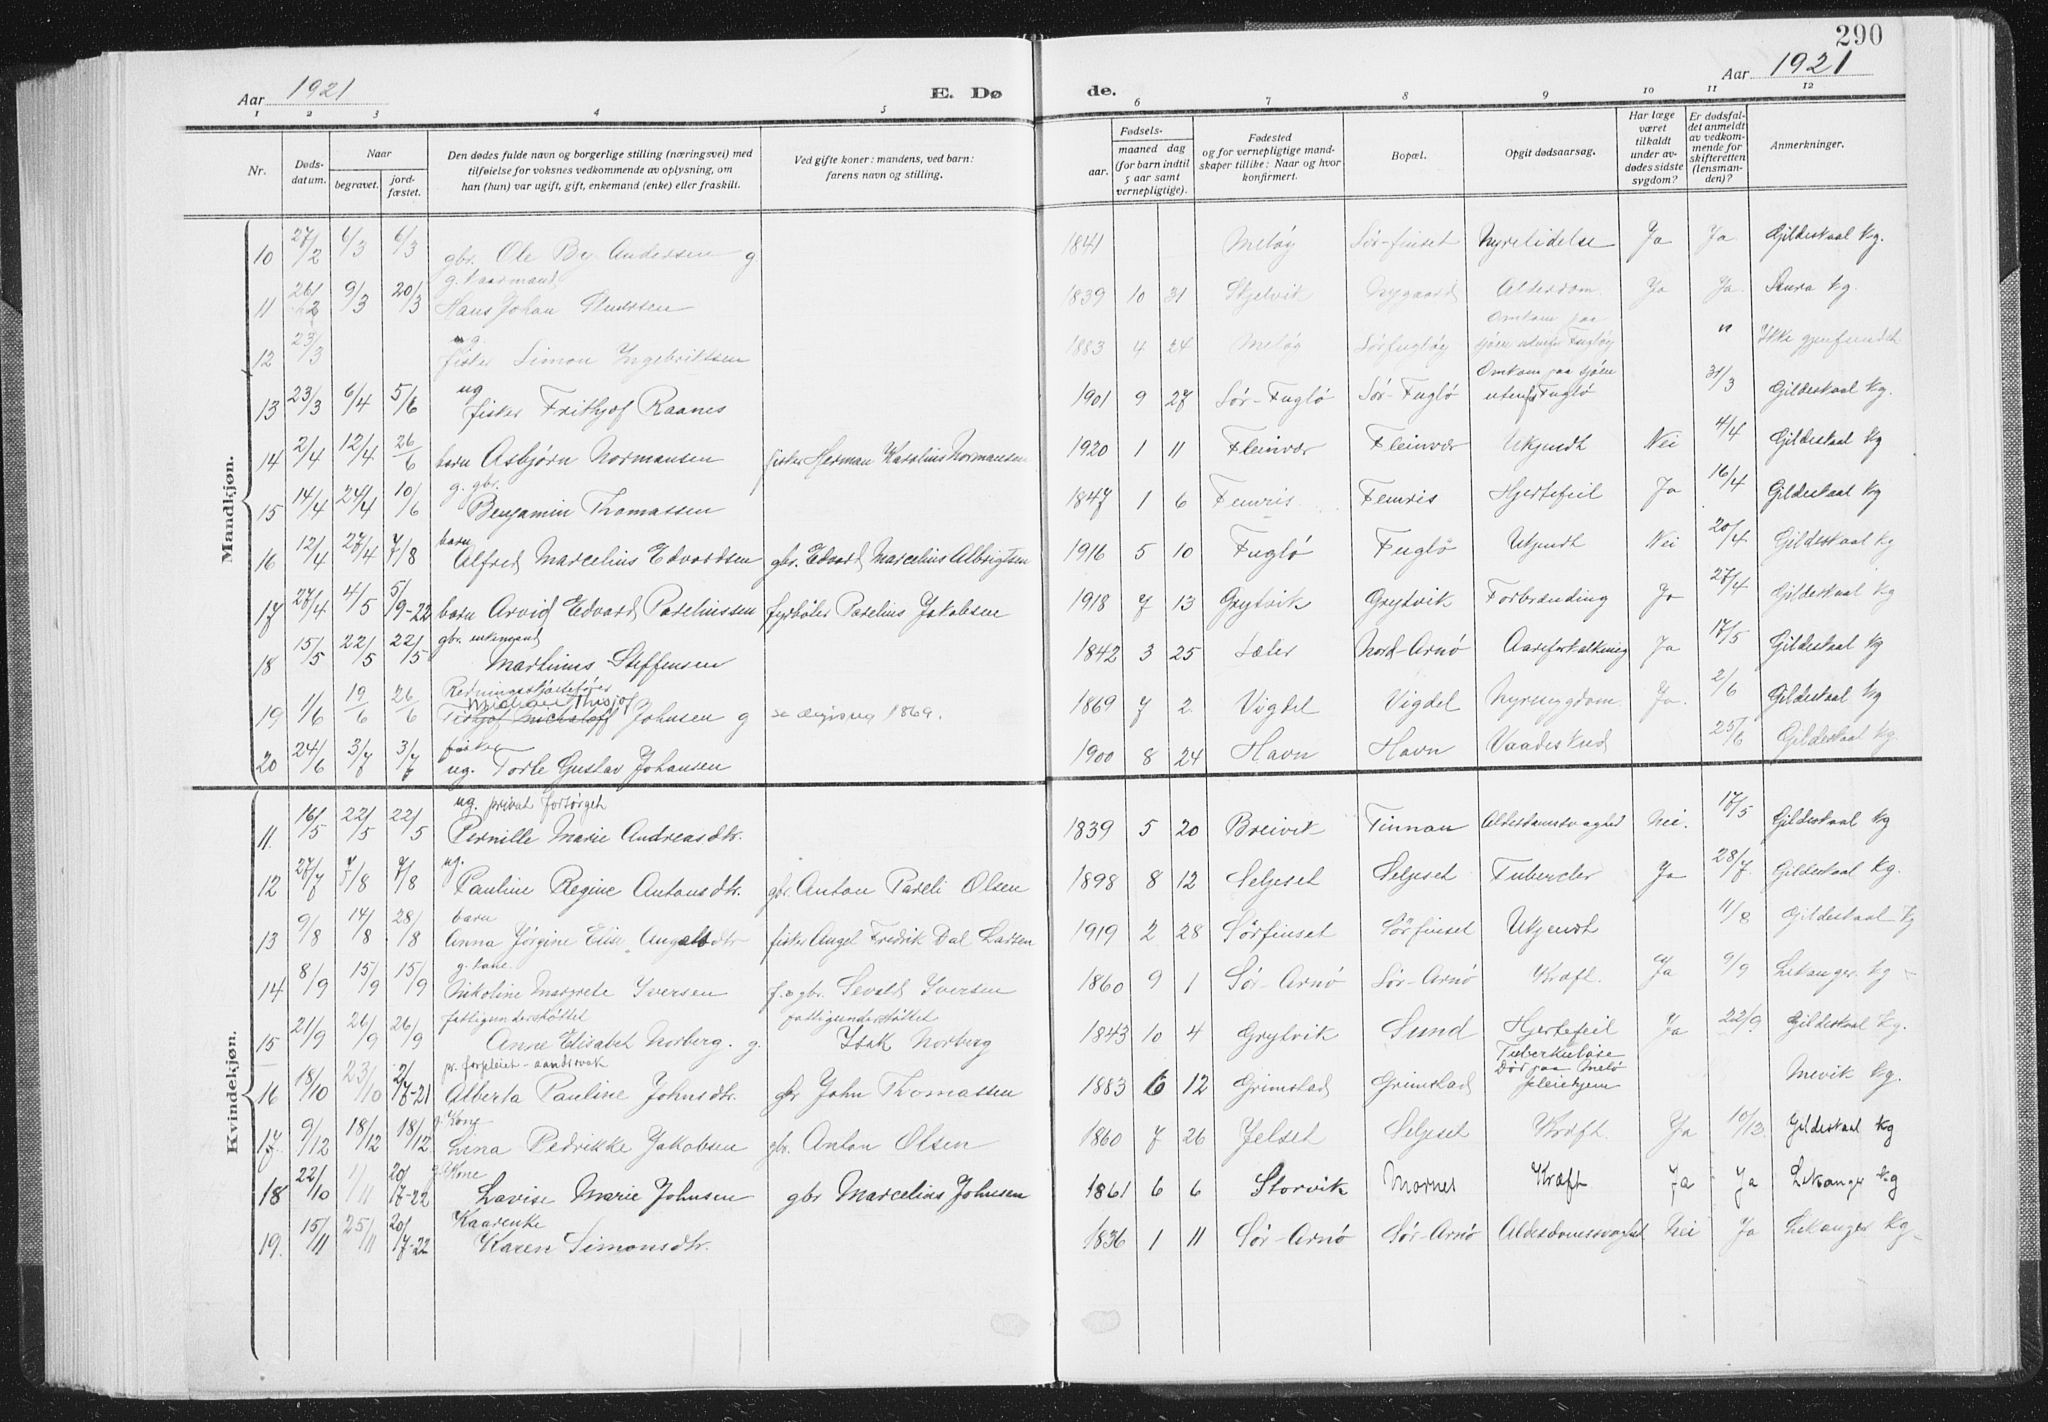 290
Aar 1921
E. Dø
de.
Aar 1921
1 2 3 4 5 6 7 8 9 10 11 12
Nr.
Døds-datum.
Naar
begravet.
jord-fæstet.
Den dødes fulde navn og borgerlige stilling (næringsvei) med
tilføielse for voksnes vedkommende av oplysning, om
han (hun) var ugift, gift, enkemand (enke) eller fraskilt.
Ved gifte koner: mandens, ved barn:
farens navn og stilling.
Fødsels-
aar.
maaned dag
(for barn indtil
5 aar samt
vernepligtige).
Fødested
og for vernepligtige mand-
skaper tillike: Naar og hvor
konfirmert.
Bopæl.
Opgit dødsaarsag.
Har læge
været
tilkaldt
under av-
dødes sidste
sygdom?
Er dødsfal-
det anmeldt
av vedkom-
mende for
skifteretten
(lensman-
den)?
Anmerkninger.
Mandkjøn.
10 27/2 6/3 6/3 gbr. Ole Andersen g 1841 Meløy Sør-finset Nyrelidelse Ja Ja Gildeskaal kg.
11 9/3 20/3 Hans Johan 1839 10 31 Skjelvik Nygaard Alderdom Ja Ja. kg.
12 23/3 fisker Simon Ingebrittsen 1883 4 24 Meløy Sørfugløy Omkom paa sjøen utenfor Fugløy " Ikke gjenfundet
13 23/3 6/4 5/6 ug fisker Frithjof Raanes 1901 9 27 Sør-Fuglø Sør-Fuglø Omkom paa sjøen utenfor Fuglø 31/3 Gildeskaal kg.
14 2/4 12/4 26/6 barn Asbjørn Normansen fisker Herman Karolius Normansen 1920 1 11 Fleinvær Fleinvær Ukjendt Nei 4/4 Gildeskaal kg
15 14/4 24/4 10/6 g. gbr. Benjamin Thomassen 1847 1 6 Femris Femris Hjertefeil Ja 16/4 Gildeskaal kg
16 12/4 27/4 7/8 barn Alfred Marcelius Edvardsen gbr. Edvard Marcelius Albrigtsen 1916 5 10 Fuglø Fuglø Ukjendt Nei 20/4 Gildeskaal kg
17 27/4 4/5 5/9-22 barn Arvid Edvard Pareliussen fyrbøter Parelius Jakobsen 1918 7 13 Grytvik Grytvik Forbrænding Ja 27/4 Gildeskaal kg
18 15/5 22/5 22/5 gbr. enkemand Martinus Steffensen 1842 3 25 Sæter Nord-Arnø Aareforkalkning Ja 17/5 Gildeskaal kg
19 1/6 19/6 26/6 Johnsen g 1869. 1869 7 2 Vigdel Vigdel Nyresygdom Ja. 2/6 Gildeskaal kg
20 24/6 3/7 3/7 fisker ug. Torle Gustav Johansen 1900 8 24 Havn Havn Vaadeskud 25/6 Gildeskaal kg.
Kvindekjøn.
11. 16/5 22/5 22/5 ug. privat forsørget Pernille Marie Andreasdtr. 1839 5 20 Breivik Finnan Alderdomssvaghed Nei. 17/5 Gildeskaal kg
12 27/7 7/8 7/8 ug. Pauline Regine Antonsdtr. gbr. Anton Pareli Olsen 1898 8 12 Seljeset Seljeset Tubercler Ja 28/7. Gildeskaal kg.
13 9/8 14/8 28/8 barn Anna Jørgine Elise fisker Angel Fredrik Dal Larsen 1919 2 28 Sørfinset Sørfinset Ukjendt 11/8 Gildeskaal kg
14 8/9 15/9 15/9 g. kone. Nikoline Margrete Iversen gbr. Sevald Iversen 1860 9 1 Sør-Arnø Sør-Arnø Kræft. Ja 9/9 Lekanger kg
15 21/9 26/9 26/9 fattigunderstøttet Anne Elisabet Norberg. g. fattigunderstøttet Isak Norberg 1843 10 4 Grytvik Sund Hjertefeil Ja 22/9 Gildeskaal kg.
16 18/10 23/10 2/7-21 pr. forpleiet - aandsvak Alberta Pauline Johnsdtr. gbr John Thomassen 1883 6 12 Grimstad Grimstad Tuberkulose Dør paa Melø Pleiehjem Mevik kg.
17. 9/12 18/12 18/12 g. Kone Lina Pedrikke Jakobsen gbr. Anton Olsen 1860 7 26 Jelset Seljeset Kræft. Ja 10/12. Gildeskaal kg
18 22/10 1/11 20/7-22 g. Kone Lavise Marie Johnsen gbr Marcelius Johnsen 1861 6 6 Storvik Mornes Kræft Ja Ja Lekanger kg
19. 15/11 25/11 20/7-22 Kaarenke Karen Simonsdtr. 1836 1 11 Sør-Arnø Sør-Arnø Alderdomssvaghet Nei Ja Lekanger kg